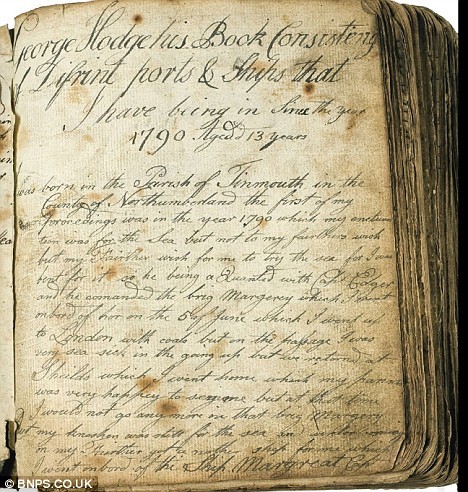 George Hodge his Book Consisteng
of Difrint ports & Ships that
I have being in Since the year
1790 Aged 13 years
was born in the Parish of Tinmouth in the
County of Northumberland the first of my
Proceedings was in the year 1790 which my enclina
tion was for the Sea but not to my fairthers wish
but my fairther wish for me to try the sea for I was
but for it so he being a Quanted with
and he comanded the brig Margerey which I went
onbord of hor on the 5 of June which I went up
to London with coals but on the passage I was
very sea sick in the going up but we returned at
Shuilds which I went home which my parants
was very happey to see me but at that time
I would not go any more in that brig Margery
but my enclination was still for the sea
in my fairther got a nother ship for me which
I went onbord of the Ship Margreat
© BNPS.CO.UK